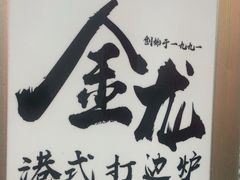 金龙
创始于一九九一
港式打边炉